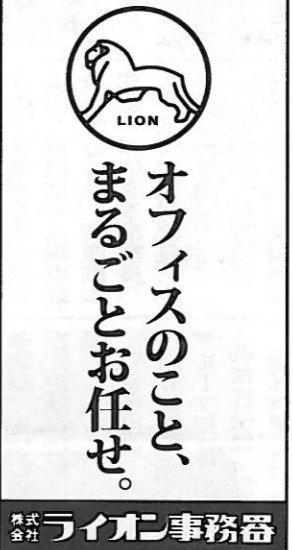 LION
オフィスのこと、
まるごとお任せ。
株式会社ライオン事務器